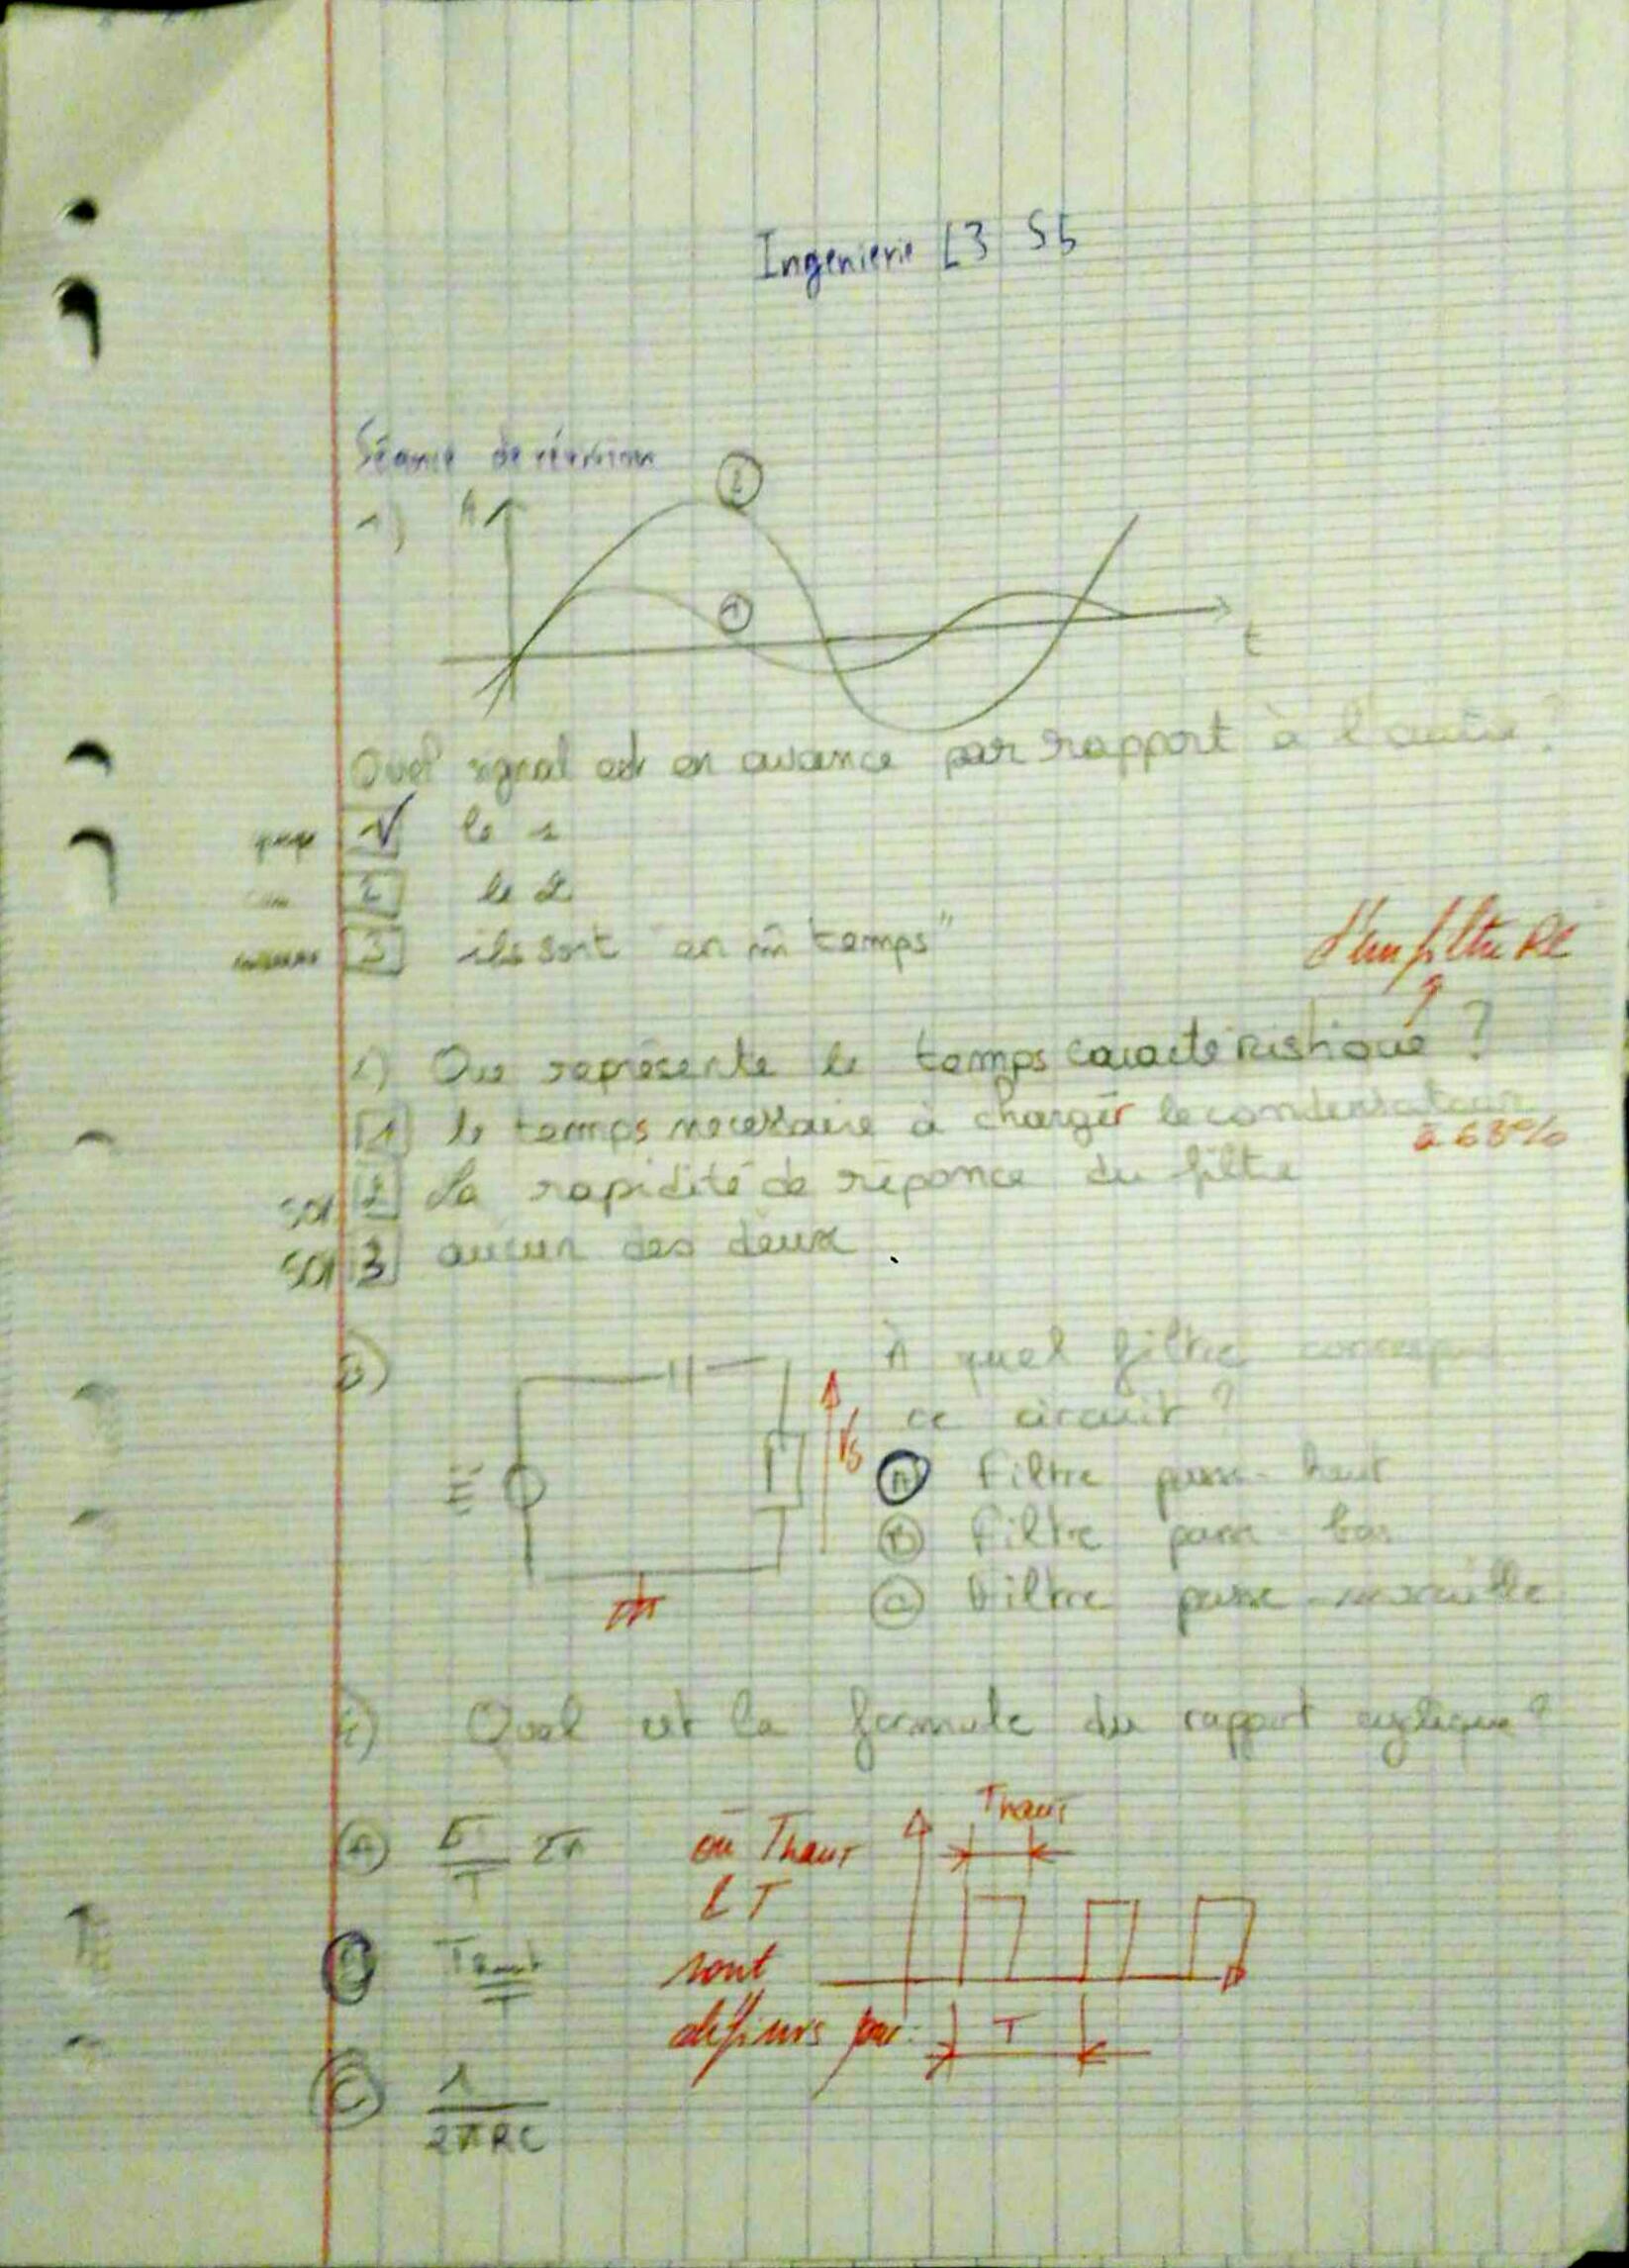 Ingenierie L3 S5
Séance de révision
1) A
2
1
t
Quel signal est en avance par rapport à l'autre ?
1 le 1
2 le 2
3 ils sont "en m̂ temps"
d'un filtre RC
1) Que représente le temps caractéristique ?
1 le temps necessaire à charger le condensateur
à 63%
2 La rapidité de réponce du filtre
3 aucun des deux.
3) À quel filtre correspond
ce circuit ?
Vs
A Filtre passe-haut
B Filtre passe-bas
C Filtre passe-muraille
4) Quel est la formule du rapport cyclique ?
Thaut
A
où Thaut
& T
B Thaut/T
sont
définis par:
T
C 1/2πRC